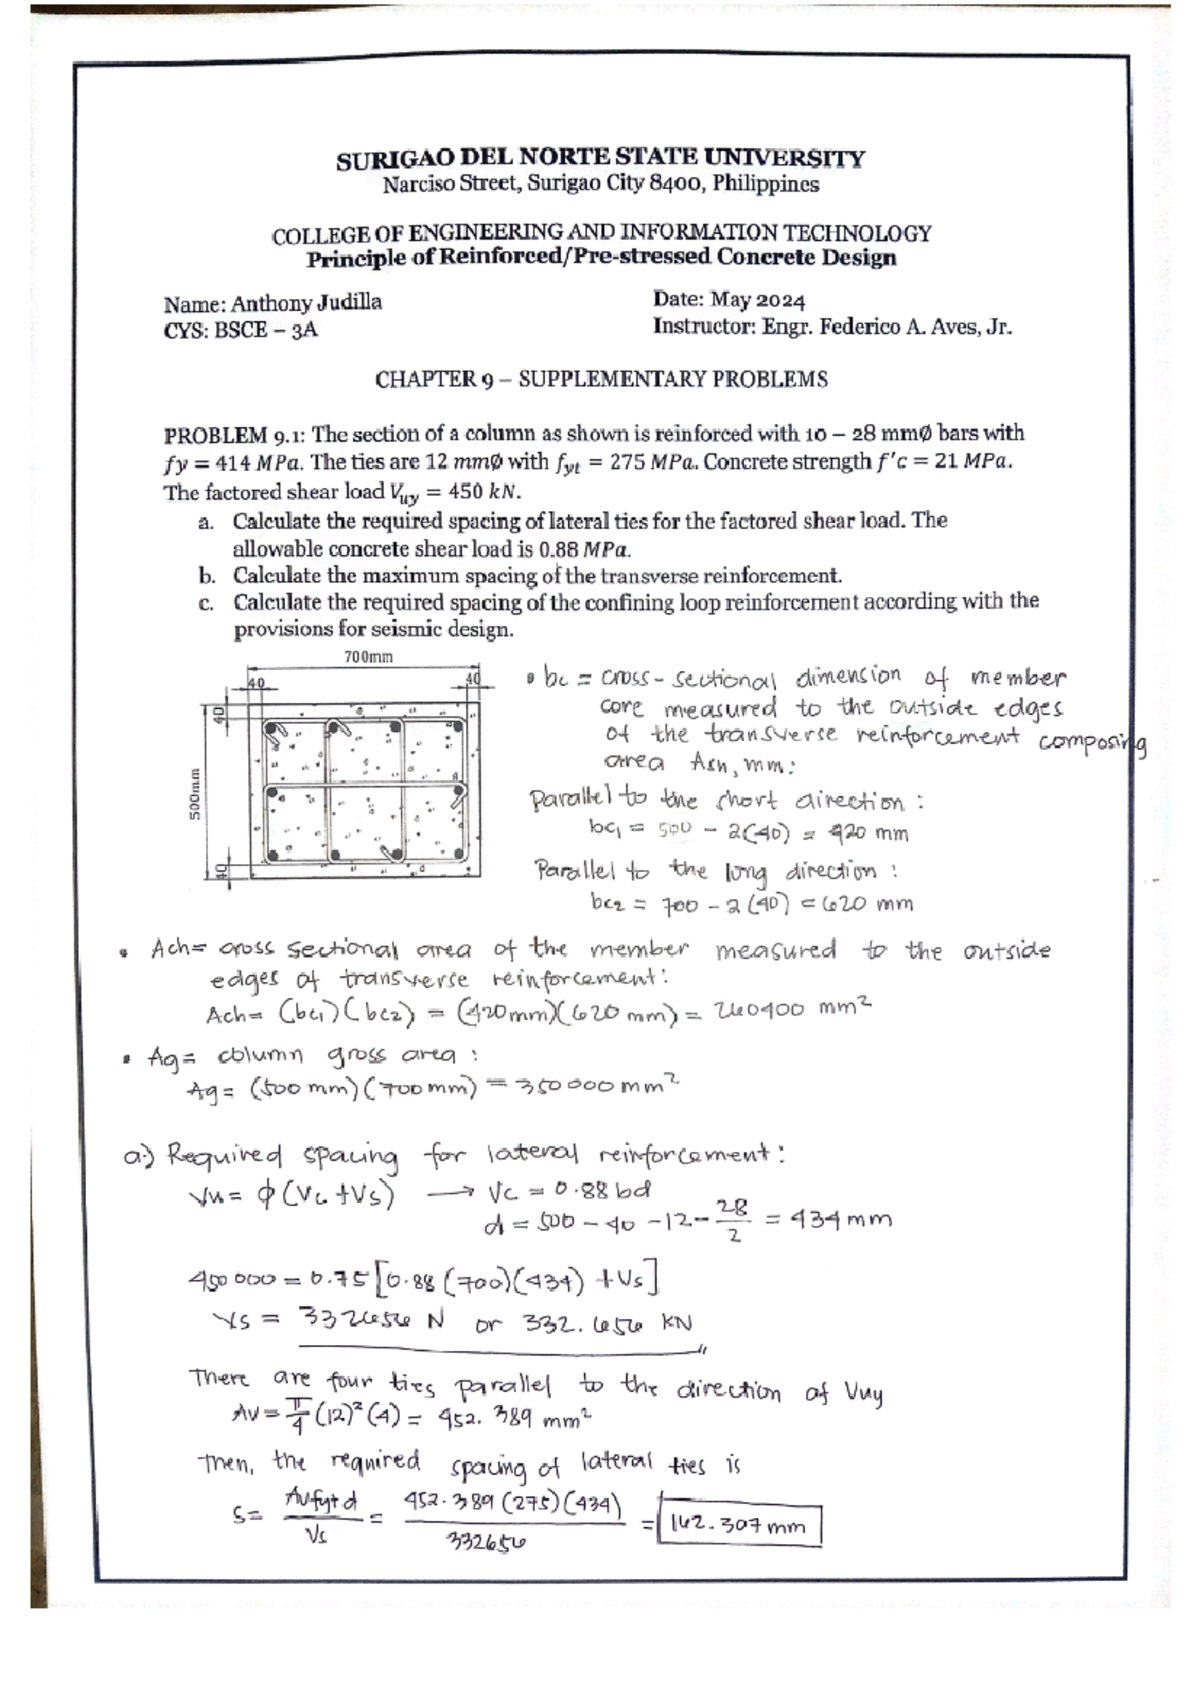 SURIGAO DEL NORTE STATE UNIVERSITY
Narciso Street, Surigao City 8400, Philippines
COLLEGE OF ENGINEERING AND INFORMATION TECHNOLOGY
Principle of Reinforced/Pre-stressed Concrete Design
Name: Anthony Judilla
Date: May 2024
CYS: BSCE – 3A
Instructor: Engr. Federico A. Aves, Jr.
CHAPTER 9 – SUPPLEMENTARY PROBLEMS
PROBLEM 9.1: The section of a column as shown is reinforced with 10 – 28 mmØ bars with
fy = 414 MPa. The ties are 12 mmØ with fyt = 275 MPa. Concrete strength f'c = 21 MPa.
The factored shear load Vuy = 450 kN.
a. Calculate the required spacing of lateral ties for the factored shear load. The
allowable concrete shear load is 0.88 MPa.
b. Calculate the maximum spacing of the transverse reinforcement.
c. Calculate the required spacing of the confining loop reinforcement according with the
provisions for seismic design.
700mm
40
40
40
500mm
40
• bc = cross-sectional dimension of member
core measured to the outside edges
of the transverse reinforcement composing
area Ash, mm:
Parallel to the short direction:
bc1 = 500 - 2(40) = 420 mm
Parallel to the long direction:
bc2 = 700 - 2(40) = 620 mm
• Ach = cross sectional area of the member measured to the outside
edges of transverse reinforcement:
Ach = (bc1)(bc2) = (420mm)(620 mm) = 260400 mm²
• Ag = column gross area:
Ag = (500 mm)(700mm) = 350000 mm²
a.) Required spacing for lateral reinforcement:
Vu = ϕ(Vc + Vs) → Vc = 0.88bd
d = 500 - 40 - 12 - 28/2 = 434 mm
450 000 = 0.75[0.88(700)(434) + Vs]
Vs = 332656 N or 332.656 KN
There are four ties parallel to the direction of Vuy
Av = π/4 (12)²(4) = 452.389 mm²
Then, the required spacing of lateral ties is
s = Avfyt d / Vs = 452.389(275)(434) / 332656 = 162.307 mm